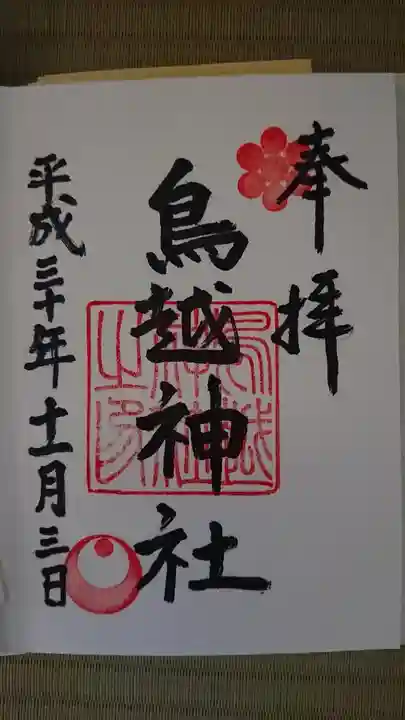 奉拝
鳥越神社
平成三十年十一月三日